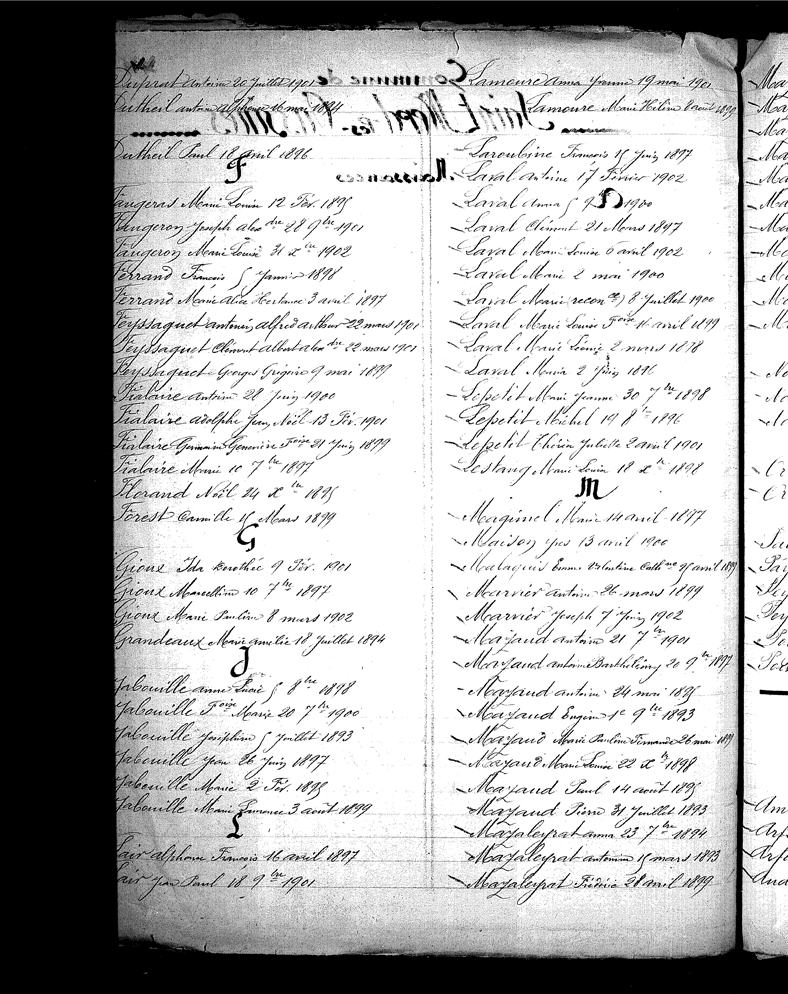 Duprat Antoine 20 Juillet 1901
Dutheil antoine alphonse 16 mai 1894
Dutheil Paul 18 avril 1896
F
Faugeras Marie Louise 12 Fév. 1895
Faugeron Joseph alex dre 28 9bre 1901
Faugeron Marie Louise 31 Xbre 1902
Ferrand François 5 Janvier 1898
Ferrand Marie alice Hortense 3 avril 1897
Feyssaguet antonin alfred arthur 22 mars 1901
Feyssaguet Clément albert alex dre 22 mars 1901
Feyssaguet Georges Grégoire 9 mai 1899
Fialaire antoine 28 Juin 1900
Fialaire adolphe Jean Noël 13 Fév. 1901
Fialaire Germaine Geneviève Foise 21 Juin 1899
Fialaire Marie 10 7bre 1897
Florand Noël 24 Xbre 1895
Forest Camille 15 Mars 1899
G
Gioux Ida Dorothée 9 Fév. 1901
Gioux Marcelline 10 7bre 1897
Gioux Marie Pauline 8 mars 1902
Grandeaux Marie amélie 18 Juillet 1894
J
Jabouille anne Lucie 5 8bre 1898
Jabouille Foise Marie 20 7bre 1900
Jabouille Joséphine 5 Juillet 1893
Jabouille Jean 26 Juin 1897
Jabouille Marie 2 Fév. 1895
Jabouille Marie Laurence 3 août 1899
L
Lair alphonse François 16 avril 1897
Lair Jean Paul 18 9bre 1901
Lamoure anna Yvonne 19 mai 1901
Lamoure Marie Hélène 8 août 1899
Laroubine François 15 Juin 1897
Laval antoine 17 Février 1902
Laval anna 5 9bre 1900
Laval Clément 21 Mars 1897
Laval Marie Louise 6 avril 1902
Laval Marie 2 mai 1900
Laval Marie (recon ce) 8 Juillet 1900
Laval Marie Louise Foise 14 avril 1899
Laval Marie Léonie 2 mars 1898
Laval Marie 2 Juin 1896
Lepetit Marie Jeanne 30 7bre 1898
Lepetit Michel 19 8bre 1896
Lepetit Thérèse Juliette 2 avril 1901
Lestang Marie Louise 18 Xbre 1898
M
Magimel Marie 14 avril 1897
Maison Yves 13 avril 1900
Malaquis Emma Valentine Cath ne 25 avril 1899
Marvier antoine 26 mars 1899
Marvier Joseph 7 Juin 1902
Mazaud antoine 21 7bre 1901
Mazaud antoine Barthélémy 20 9bre 1897
Mazaud antoine 24 mai 1895
Mazaud Eugène 1er 9bre 1893
Mazaud Marie Pauline Fernande 26 mai 1899
Mazaud Marie Louise 22 Xbre 1898
Mazaud Paul 14 août 1895
Mazaud Pierre 31 Juillet 1893
Mazaleyrat anna 23 7bre 1894
Mazaleyrat antonine 15 mars 1893
Mazaleyrat Frédéric 28 avril 1899